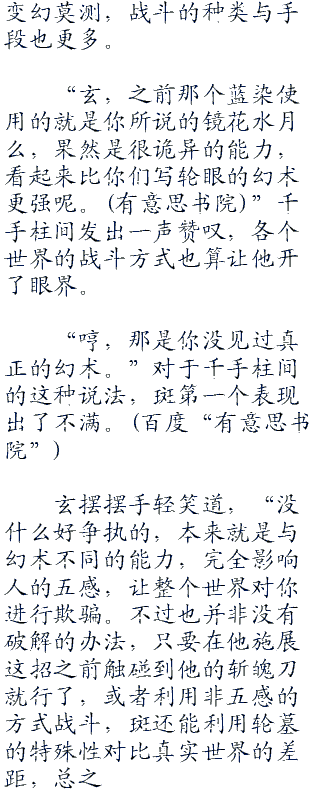 变幻莫测，战斗的种类与手
段也更多。
“玄，之前那个蓝染使
用的就是你所说的镜花水月
么，果然是很诡异的能力，
看起来比你们写轮眼的幻术
更强呢。(有意思书院)”千
手柱间发出一声赞叹，各个
世界的战斗方式也算让他开
了眼界。
“哼，那是你没见过真
正的幻术。”对于千手柱间
的这种说法，斑第一个表现
出了不满。(百度“有意思书
院”)
玄摆摆手轻笑道，“没
什么好争执的，本来就是与
幻术不同的能力，完全影响
人的五感，让整个世界对你
进行欺骗。不过也并非没有
破解的办法，只要在他施展
这招之前触碰到他的斩魄刀
就行了，或者利用非五感的
方式战斗，斑还能利用轮墓
的特殊性对比真实世界的差
距，总之